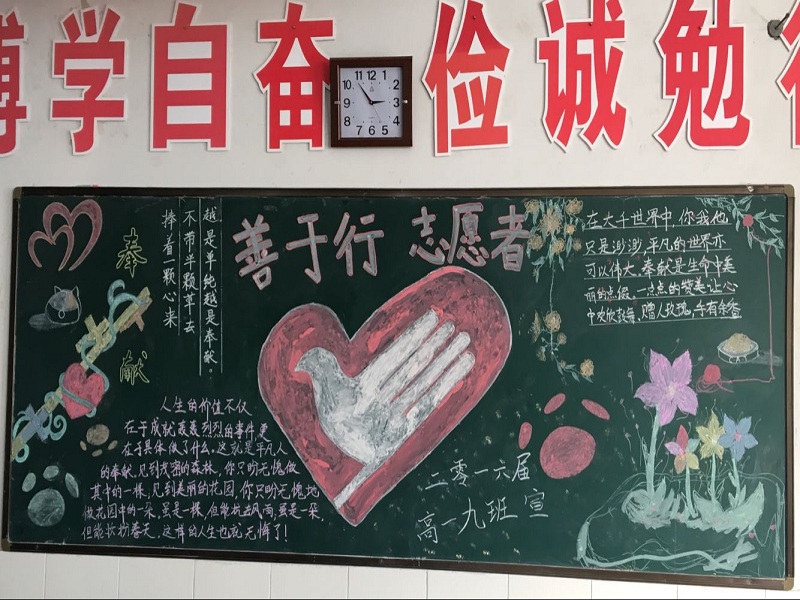 博学自奋 俭诚勉行
11 12 1
10 2
9 3
8 4
7 6 5
善于行 志愿者
奉
献
越是单纯越是奉献。
不带半颗草去
捧着一颗心来
人生的价值不仅
在于成就轰轰烈烈的事件,更
在于具体做了什么。这就是平凡人
的奉献。见到茂密的森林,你只盼无愧做
其中的一棵,见到美丽的花园,你只盼无愧地
做花园中的一朵,虽是一棵,但能抗击风雨,虽是一朵,
但能妆扮春天,这样的人生也就无悔了!
在大千世界中,你我他
只是渺渺,平凡的世界亦
可以伟大,奉献是生命中美
丽的点缀,一点点的赞美让心
中欢欣鼓舞,赠人玫瑰,手有余香
二零一六届
高一九班 宣